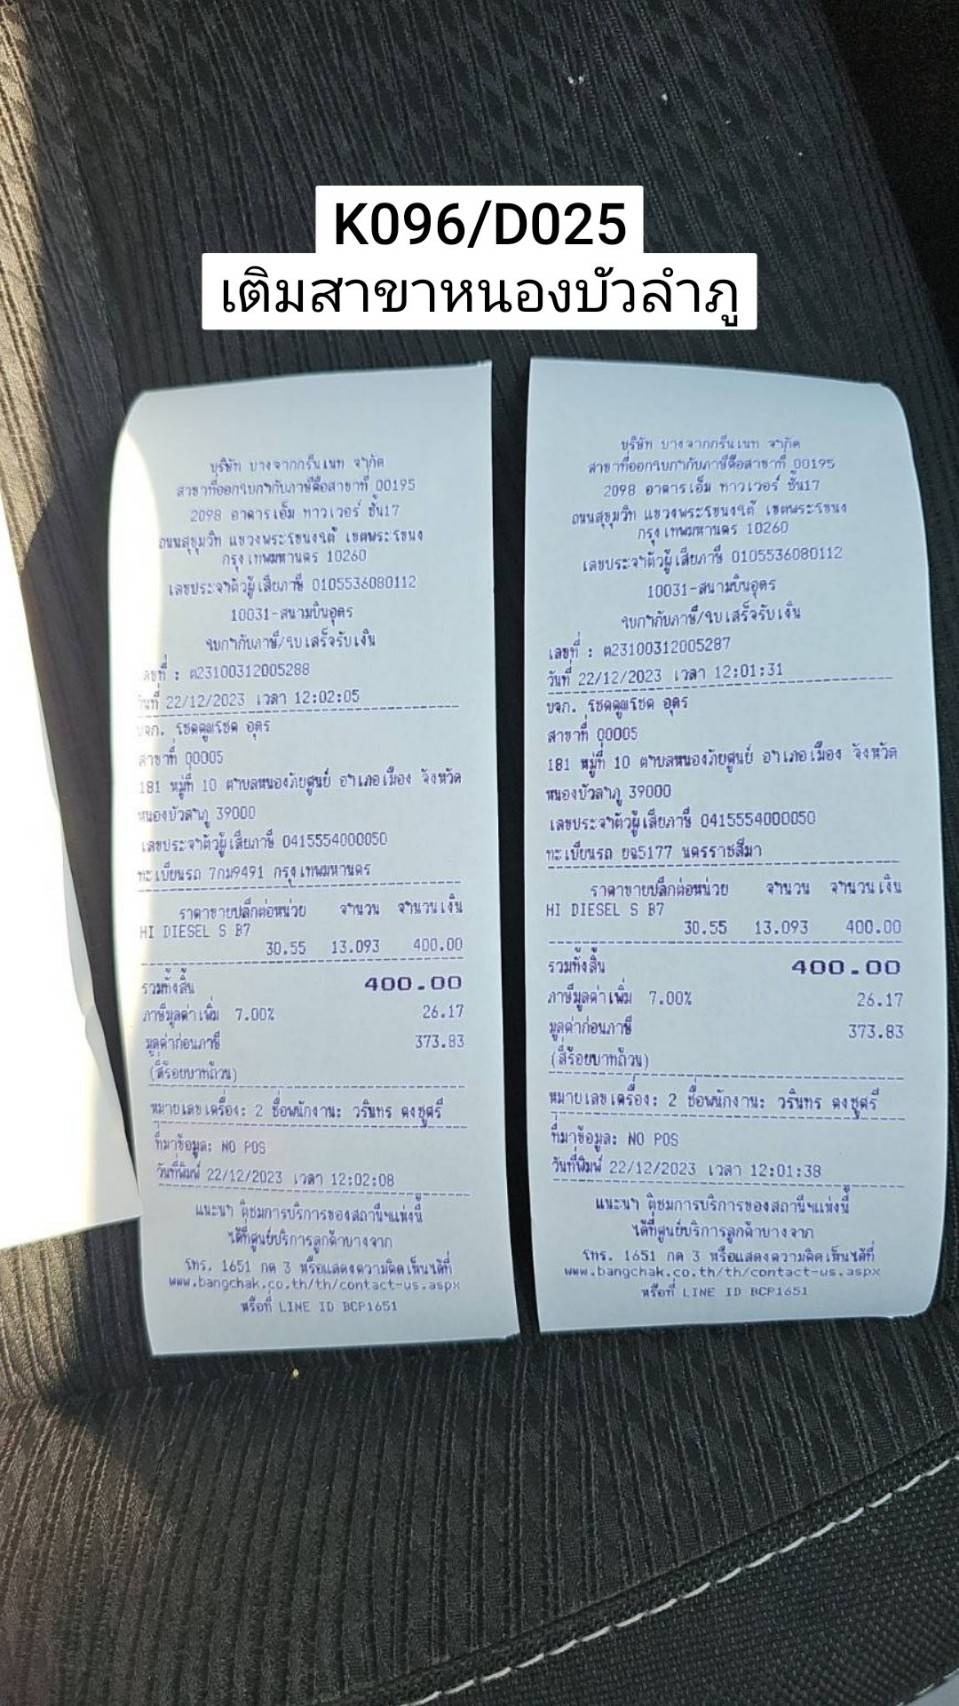 K096/D025
เติมสาขาหนองบัวลำภู
บริษัท บางจากกรีนเนท จำกัด
สาขาที่ออกใบกำกับภาษีคือสาขาที่ 00195
2098 อาคารเอ็ม ทาวเวอร์ ชั้น17
ถนนสุขุมวิท แขวงพระโขนงใต้ เขตพระโขนง
กรุงเทพมหานคร 10260
เลขประจำตัวผู้เสียภาษี 0105536080112
10031-สนามบินอุดร
ใบกำกับภาษี/ใบเสร็จรับเงิน
เลขที่ : ต23100312005288
วันที่ 22/12/2023 เวลา 12:02:05
บจก. โชคคูณโชค อุดร
สาขาที่ 00005
181 หมู่ที่ 10 ตำบลหนองภัยศูนย์ อำเภอเมือง จังหวัด
หนองบัวลำภู 39000
เลขประจำตัวผู้เสียภาษี 0415554000050
ทะเบียนรถ 7กม9491 กรุงเทพมหานคร
ราคาขายปลีกต่อหน่วย จำนวน จำนวนเงิน
HI DIESEL S B7
30.55 13.093 400.00
รวมทั้งสิ้น 400.00
ภาษีมูลค่าเพิ่ม 7.00% 26.17
มูลค่าก่อนภาษี 373.83
(สี่ร้อยบาทถ้วน)
หมายเลขเครื่อง: 2 ชื่อพนักงาน: วรินทร คงชูศรี
ที่มาข้อมูล: NO POS
วันที่พิมพ์ 22/12/2023 เวลา 12:02:08
แนะนำ ติชมการบริการของสถานีฯแห่งนี้
ได้ที่ศูนย์บริการลูกค้าบางจาก
โทร. 1651 กด 3 หรือแสดงความคิดเห็นได้ที่
www.bangchak.co.th/th/contact-us.aspx
หรือที่ LINE ID BCP1651
บริษัท บางจากกรีนเนท จำกัด
สาขาที่ออกใบกำกับภาษีคือสาขาที่ 00195
2098 อาคารเอ็ม ทาวเวอร์ ชั้น17
ถนนสุขุมวิท แขวงพระโขนงใต้ เขตพระโขนง
กรุงเทพมหานคร 10260
เลขประจำตัวผู้เสียภาษี 0105536080112
10031-สนามบินอุดร
ใบกำกับภาษี/ใบเสร็จรับเงิน
เลขที่ : ต23100312005287
วันที่ 22/12/2023 เวลา 12:01:31
บจก. โชคคูณโชค อุดร
สาขาที่ 00005
181 หมู่ที่ 10 ตำบลหนองภัยศูนย์ อำเภอเมือง จังหวัด
หนองบัวลำภู 39000
เลขประจำตัวผู้เสียภาษี 0415554000050
ทะเบียนรถ ยฉ5177 นครราชสีมา
ราคาขายปลีกต่อหน่วย จำนวน จำนวนเงิน
HI DIESEL S B7
30.55 13.093 400.00
รวมทั้งสิ้น 400.00
ภาษีมูลค่าเพิ่ม 7.00% 26.17
มูลค่าก่อนภาษี 373.83
(สี่ร้อยบาทถ้วน)
หมายเลขเครื่อง: 2 ชื่อพนักงาน: วรินทร คงชูศรี
ที่มาข้อมูล: NO POS
วันที่พิมพ์ 22/12/2023 เวลา 12:01:38
แนะนำ ติชมการบริการของสถานีฯแห่งนี้
ได้ที่ศูนย์บริการลูกค้าบางจาก
โทร. 1651 กด 3 หรือแสดงความคิดเห็นได้ที่
www.bangchak.co.th/th/contact-us.aspx
หรือที่ LINE ID BCP1651